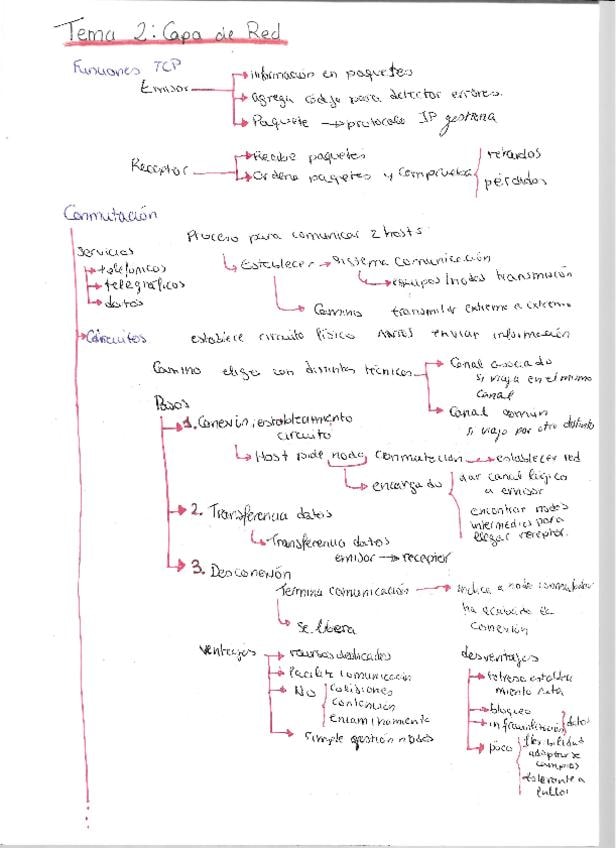 Tema 2: Capa de Red
Funciones TCP
Emisor → información en paquetes
→ agrega código para detectar errores.
→ Paquete → protocolo IP gestiona
Receptor → Recibe paquetes
→ Ordena paquetes y comprueba retardos
pérdidas
Conmutación
Proceso para comunicar 2 hosts
Servicios
→ telefónicos
→ telegráficos
→ datos
Establecer → Sistema comunicación
→ equipos/nodos transmisión
→ Camino transmitir extremo a extremo
→ Circuitos establece circuito físico antes enviar información
Camino elige con distintas técnicas → Canal asociado
si viaja en el mismo
canal
→ Canal común
si viaja por otro distinto
Pasos
→ 1. Conexión, establecimiento
circuito
→ Host pide nodo conmutación → establecer red
→ encargado dar canal lógico
a emisor
encontrar nodos
intermedios para
llegar receptor.
→ 2. Transferencia datos
→ Transferencia datos
emisor → receptor
→ 3. Desconexión
Termina comunicación → indica a nodo conmutador
ha acabado la
conexión
→ se libera
Ventajas → recursos dedicados
→ Facilita comunicación
→ No colisiones
contención
enrutamiento
→ Simple gestión nodos
desventajas
→ retraso estableci
miento ruta
→ bloqueo
→ infrautilización datos
→ poco flexibilidad
adaptarse
cambios
tolerante a
fallos